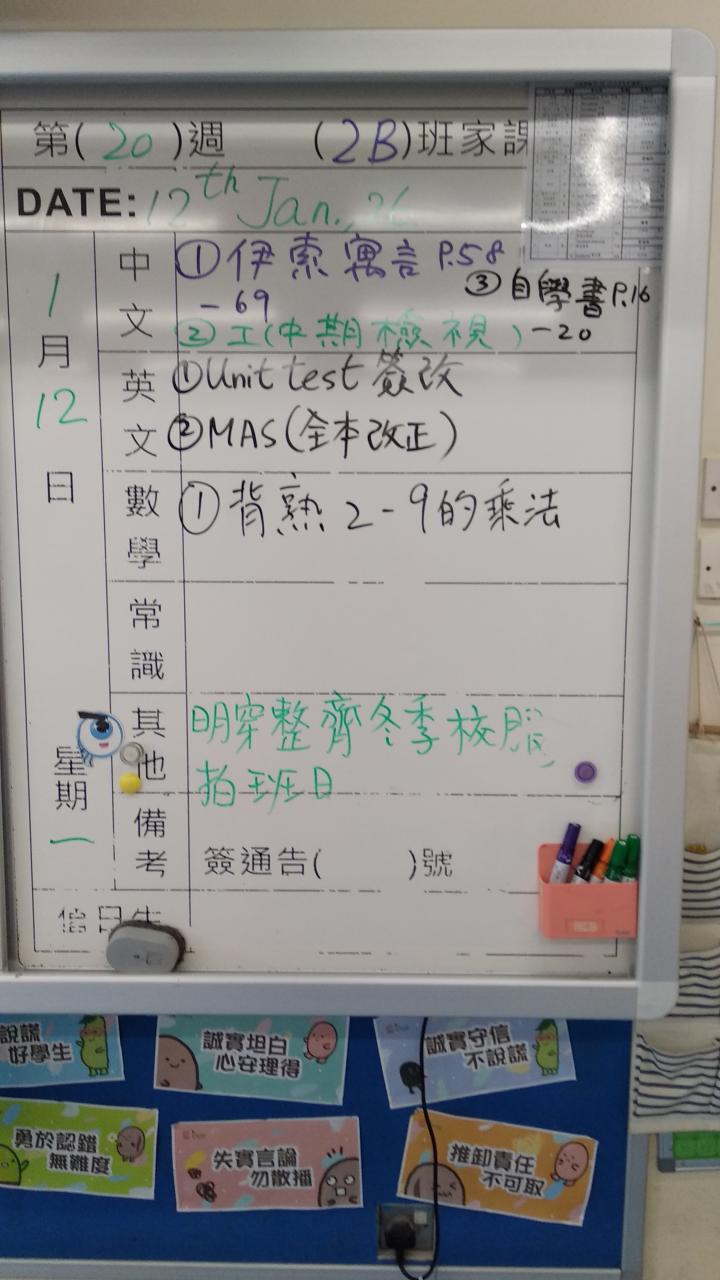 第(20)週 (2B)班家課
DATE: 12th Jan., 26
1月12日
星期一
中文
①伊索寓言 P.58
-69
③自學書P.16
②工(中期檢視) -20
英文
①Unit test 簽改
②MAS(全本改正)
數學
①背熟2-9的乘法
常識
其他
明穿整齊冬季校服
拍班日
備考
簽通告( )號
值日生
說謊
好學生
誠實坦白
心安理得
誠實守信
不說謊
勇於認錯
無難度
失實言論
勿散播
推卸責任
不可取